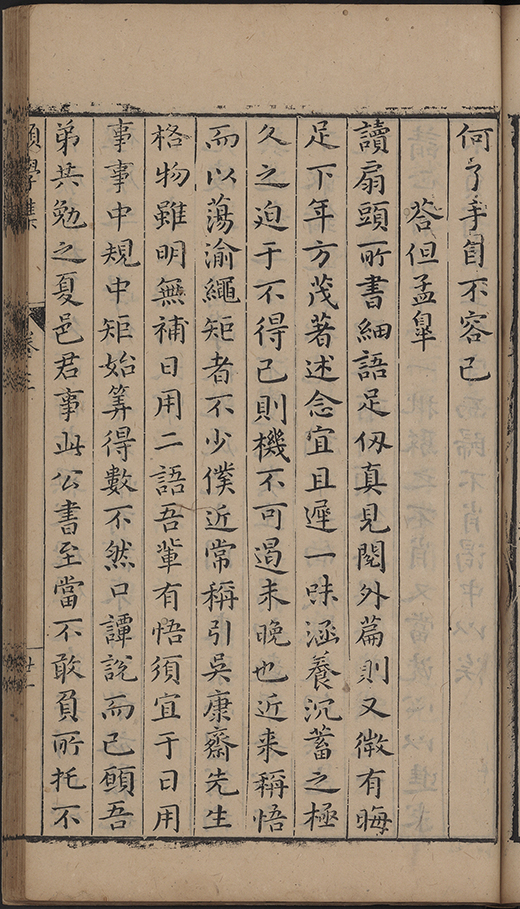 何了手自不容已
荅但孟臯
讀扇頭所書細語足仭真見閱外篇則又微有晦
足下年方茂著述念宜且遲一味涵養沉蓄之極
久之迫于不得已則機不可遏未晚也近来稱悟
而以蕩渝繩矩者不少僕近常稱引吳康齋先生
格物雖明無補日用二語吾輩有悟須宜于日用
事事中規中矩始筭得數不然只譚說而已願吾
弟共勉之夏邑君事此公書至當不敢負所托不
願學集
卷三
廿一